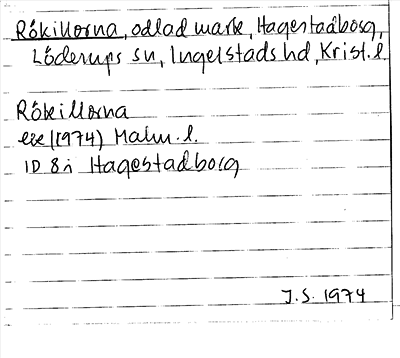 Råkillorna, odlad mark, Hagestadborg,
Löderups sn, Ingelstads hd, Krist. l.
Råkillorna
ek (1974) Malm. l.
1D 8i Hagestadborg
J.S. 1974